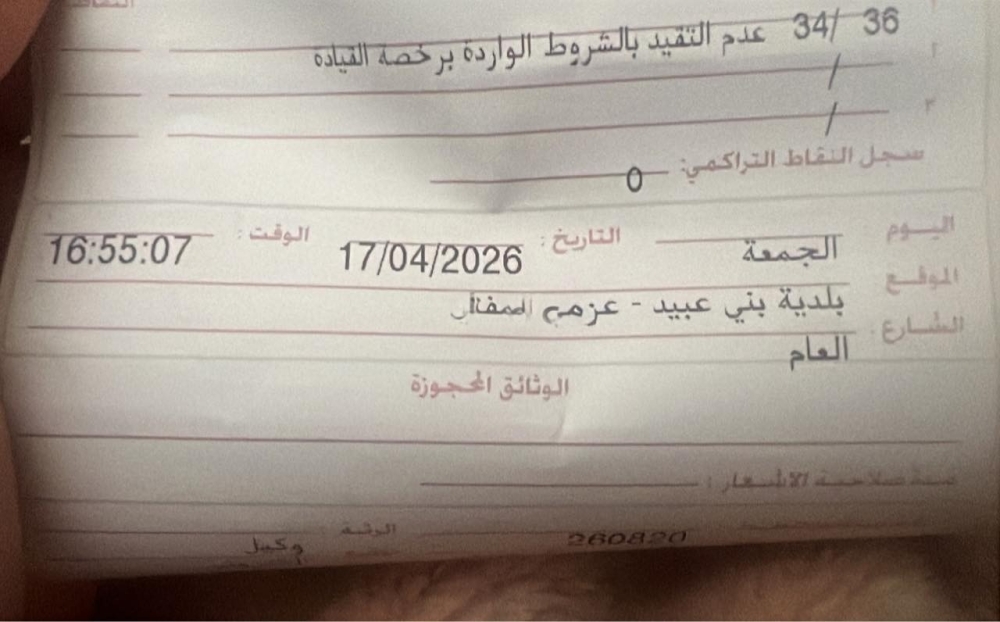 36 /34 عدم التقيد بالشروط الواردة برخصة القياده
/
٣ /
سجل النقاط التراكمي: 0
اليوم الجمعة التاريخ: 17/04/2026 الوقت: 16:55:07
الموقع بلدية بني عبيد - عزمي المفتي
الشارع العام
الوثائق المحجوزة
مدة صلاحية الاشعار:
260820 الرتبة وكيل